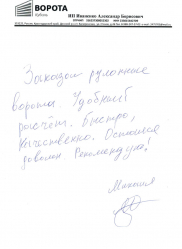 ВОРОТА
Кубань
ИП Иваненко Александр Борисович
Заказал рулонные
ворота. Удобный
расчёт. Быстро,
Качественно. Остался
доволен. Рекомендую!
Михаил